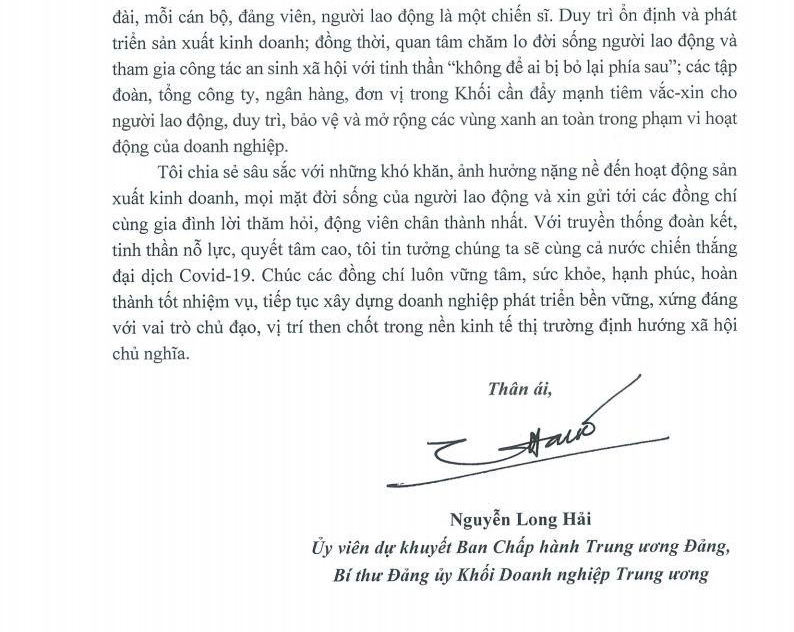 đài, mỗi cán bộ, đảng viên, người lao động là một chiến sĩ. Duy trì ổn định và phát
triển sản xuất kinh doanh; đồng thời, quan tâm chăm lo đời sống người lao động và
tham gia công tác an sinh xã hội với tinh thần “không để ai bị bỏ lại phía sau”; các tập
đoàn, tổng công ty, ngân hàng, đơn vị trong Khối cần đẩy mạnh tiêm vắc-xin cho
người lao động, duy trì, bảo vệ và mở rộng các vùng xanh an toàn trong phạm vi hoạt
động của doanh nghiệp.
Tôi chia sẻ sâu sắc với những khó khăn, ảnh hưởng nặng nề đến hoạt động sản
xuất kinh doanh, mọi mặt đời sống của người lao động và xin gửi tới các đồng chí
cùng gia đình lời thăm hỏi, động viên chân thành nhất. Với truyền thống đoàn kết,
tinh thần nỗ lực, quyết tâm cao, tôi tin tưởng chúng ta sẽ cùng cả nước chiến thắng
đại dịch Covid-19. Chúc các đồng chí luôn vững tâm, sức khỏe, hạnh phúc, hoàn
thành tốt nhiệm vụ, tiếp tục xây dựng doanh nghiệp phát triển bền vững, xứng đáng
với vai trò chủ đạo, vị trí then chốt trong nền kinh tế thị trường định hướng xã hội
chủ nghĩa.
Thân ái,
Nguyễn Long Hải
Ủy viên dự khuyết Ban Chấp hành Trung ương Đảng,
Bí thư Đảng ủy Khối Doanh nghiệp Trung ương